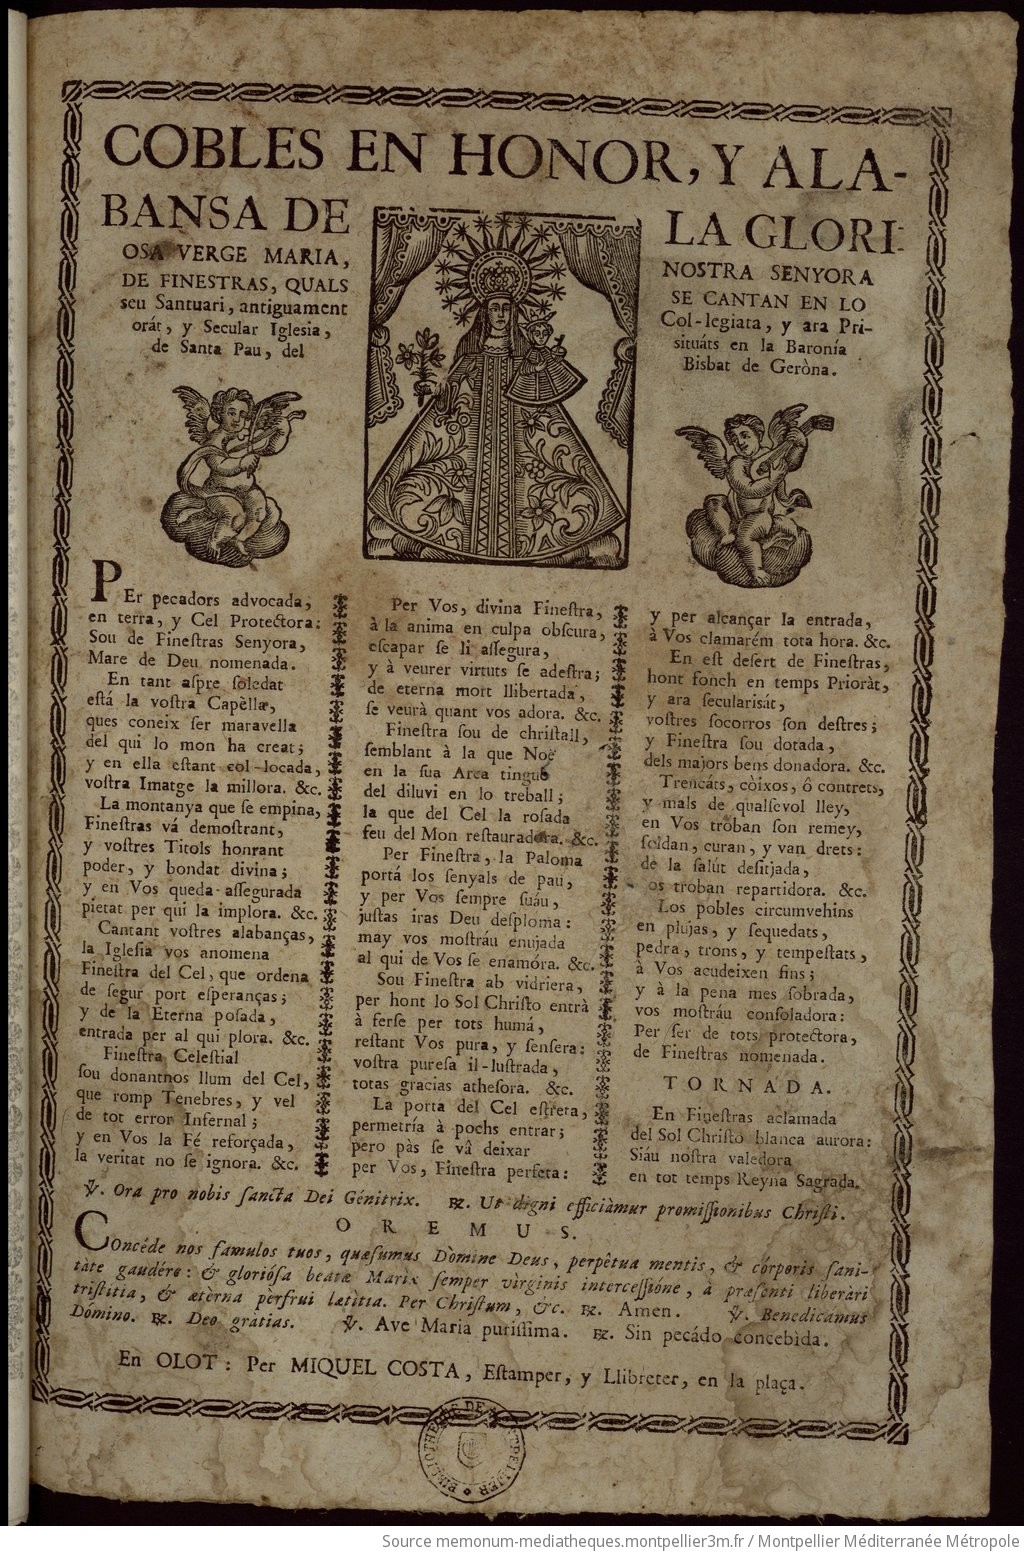 COBLES EN HONOR, Y ALA-
BANSA DE LA GLORI-
OSA VERGE MARIA, NOSTRA SENYORA
DE FINESTRAS, QUALS SE CANTAN EN LO
seu Santuari, antiguament Col-legiata, y ara Pri-
orát, y Secular Iglesia, situáts en la Baronía
de Santa Pau, del Bisbat de Geròna.
PEr pecadors advocada,
en terra, y Cel Protectora:
Sou de Fineſtras Senyora,
Mare de Deu nomenada.
En tant aſpre ſoledat
eſtá la voſtra Capèlla,
ques coneix ſer maravella
del qui lo mon ha creat;
y en ella eſtant col-locada,
voſtra Imatge la millora. &c.
La montanya que ſe empina,
Fineſtras vá demoſtrant,
y voſtres Titols honrant
poder, y bondat divina;
y en Vos queda aſſegurada
pietat per qui la implora. &c.
Cantant voſtres alabanças,
la Igleſia vos anomena
Fineſtra del Cel, que ordena
de ſegur port eſperanças;
y de la Eterna poſada,
entrada per al qui plora. &c.
Fineſtra Celeſtial
sou donantnos llum del Cel,
que romp Tenebres, y vel
de tot error Infernal;
y en Vos la Fé reforçada,
la veritat no ſe ignora. &c.
Per Vos, divina Fineſtra,
à la anima en culpa obſcura,
eſcapar ſe li aſſegura,
y à veurer virtuts ſe adeſtra;
de eterna mort llibertada,
ſe veurà quant vos adora. &c.
Fineſtra ſou de chriſtall,
ſemblant à la que Noè
en la ſua Arca tingué
del diluvi en lo treball;
la que del Cel la roſada
feu del Mon reſtauradora. &c.
Per Fineſtra, la Paloma
portá los ſenyals de pau,
y per Vos ſempre ſuáu,
juſtas iras Deu deſploma:
may vos moſtráu enujada
al qui de Vos ſe enamóra. &c.
Sou Fineſtra ab vidriera,
per hont lo Sol Chriſto entrà
à ferſe per tots humá,
reſtant Vos pura, y ſenſera:
voſtra pureſa il-luſtrada,
totas gracias atheſora. &c.
La porta del Cel eſtreta,
permetría à pochs entrar;
pero pàs ſe vâ deixar
per Vos, Fineſtra perfeta:
y per alcançar la entrada,
à Vos clamarém tota hora. &c.
En eſt deſert de Fineſtras,
hont fonch en temps Prioràt,
y ara ſecularisát,
voſtres ſocorros ſon deſtres;
y Fineſtra ſou dotada,
dels majors bens donadora. &c.
Trencáts, còixos, ô contrets,
y mals de qualſevol lley,
en Vos tròban ſon remey,
ſoldan, curan, y van drets:
de la ſalút deſitjada,
os troban repartidora. &c.
Los pobles circumvehins
en plujas, y ſequedats,
pedra, trons, y tempeſtats,
à Vos acudeixen fins;
y à la pena mes ſobrada,
vos moſtráu conſoladora:
Per ſer de tots protectora,
de Fineſtras nomenada.
TORNADA.
En Fineſtras aclamada
del Sol Chriſto blanca aurora:
Siáu noſtra valedora
en tot temps Reyna Sagrada.
℣. Ora pro nobis ſancta Dei Génitrix. ℟. Ut digni efficiàmur promiſſionibus Chriſti.
OREMUS.
COncéde nos famulos tuos, quæſumus Dòmine Deus, perpêtua mentis, & córporis ſani-
tàte gaudére: & glorióſa beatæ Mariæ ſemper vìrginis interceſſióne, à præſenti liberàri
triſtitia, & ætèrna pèrfrui lætìtia. Per Chriſtum, &c. ℟. Amen. ℣. Benedicamus
Dómino. ℟. Deo gràtias. ℣. Ave Maria puriſſima. ℟. Sin pecádo concebida.
En OLOT: Per MIQUEL COSTA, Eſtamper, y Llibreter, en la plaça.
BIBLIOTHEQUE DE MONTPELLIER
Source memonum-mediatheques.montpellier3m.fr / Montpellier Méditerranée Métropole